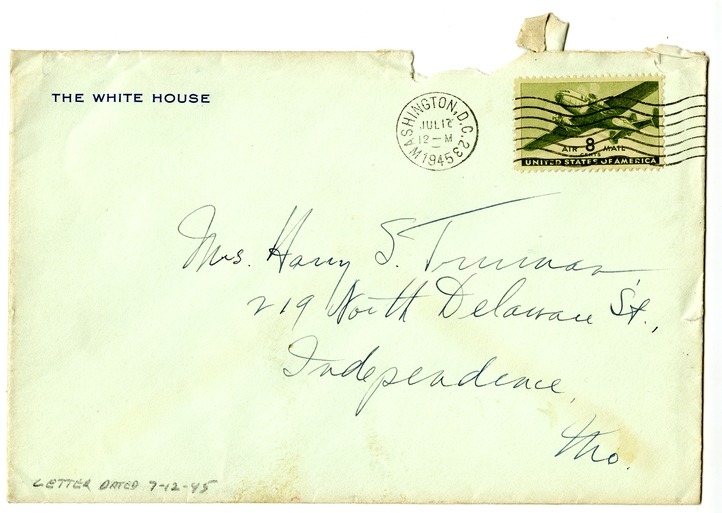 THE WHITE HOUSE
WASHINGTON, D.C. 23
JUL 12
12 — M
1945
AIR 8 MAIL
CENTS
UNITED STATES OF AMERICA
Mrs. Harry S. Truman
219 North Delaware St.,
Independence,
Mo.
LETTER DATED 7-12-45